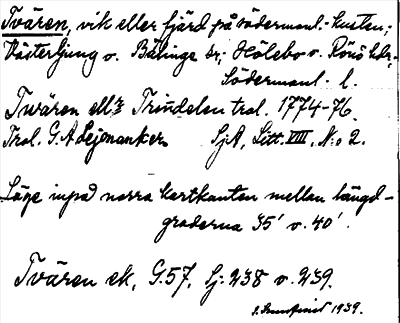 Tvären, vik eller fjärd på södermanl.-kusten;
Västerljung o. Bälinge sr; Hölebo o. Rönö hdr,
Södermanl. l.
Twären ell:r Trindelen tral. 1774-76.
Tral. G. A Lejonanker. SjA, Litt. VIII, N:o 2.
Läge inpå norra kartkanten mellan längd-
graderna 35' o. 40'.
Tvären ek, G.57. Sj: 238 o. 239.
1939.